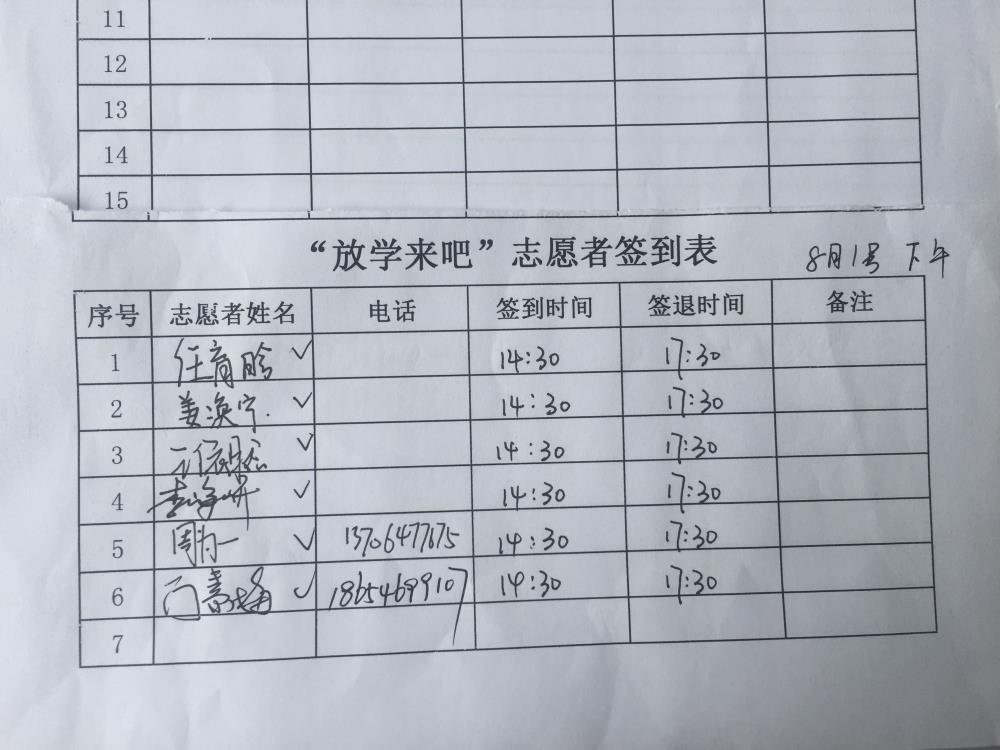 11
12
13
14
15
“放学来吧”志愿者签到表 8月1号 下午
序号 志愿者姓名 电话 签到时间 签退时间 备注
1 任育晗 ✓ 14:30 17:30
2 姜涣宁. ✓ 14:30 17:30
3 ✓ 14:30 17:30
4 ✓ 14:30 17:30
5 周为一 ✓ 14:30 17:30
6 ✓ 18654699107 14:30 17:30
7